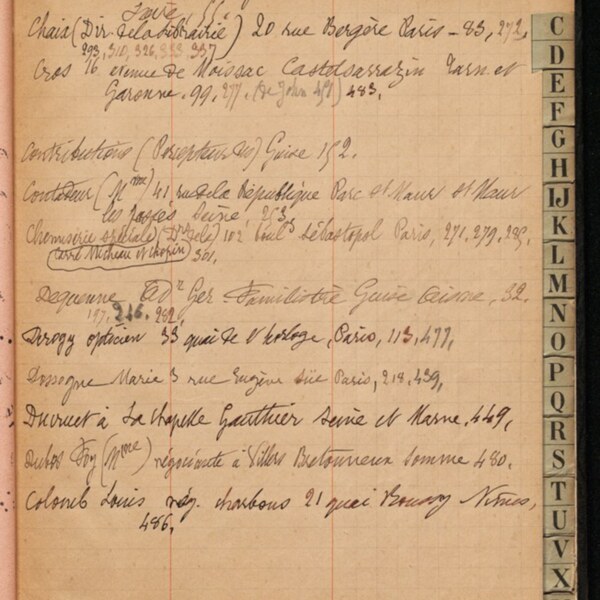 Chaix (Dir. de la Librairie) 20 rue Bergère Paris – 83, 272,
293, 310, 326, 333, 337
Cros 16 avenue de Moissac Castelsarrazin Tarn et
Garonne. 99, 277. (de John 451) 483.
Contributions (Percepteur des) Guise 152.
Couteleur (Mme) 41, rue de la République Parc St Maur St Maur
les Fossés Seine, 253,
Chemiserie spéciale (Dr de la) 102 Boul Sébastopol Paris, 271, 279, 285,
301,
Dequenne Adr Ger Familistère Guise Aisne, 32.
197, 216, 282,
Derogy opticien 33 quai de l'horloge, Paris, 113, 477,
Dossogne Marie 3 rue Eugène Süe Paris, 218, 459,
Ducruet à La chapelle Gauthier Seine et Marne, 449,
Dubos Foy (Mme) négociante à Villers Bretonneux Somme 480.
Colomb Louis nég. charbons 21 quai Nîmes,
486,
C
D
E
F
G
H
IJ
K
L
M
N
O
P
Q
R
S
T
U
V
X